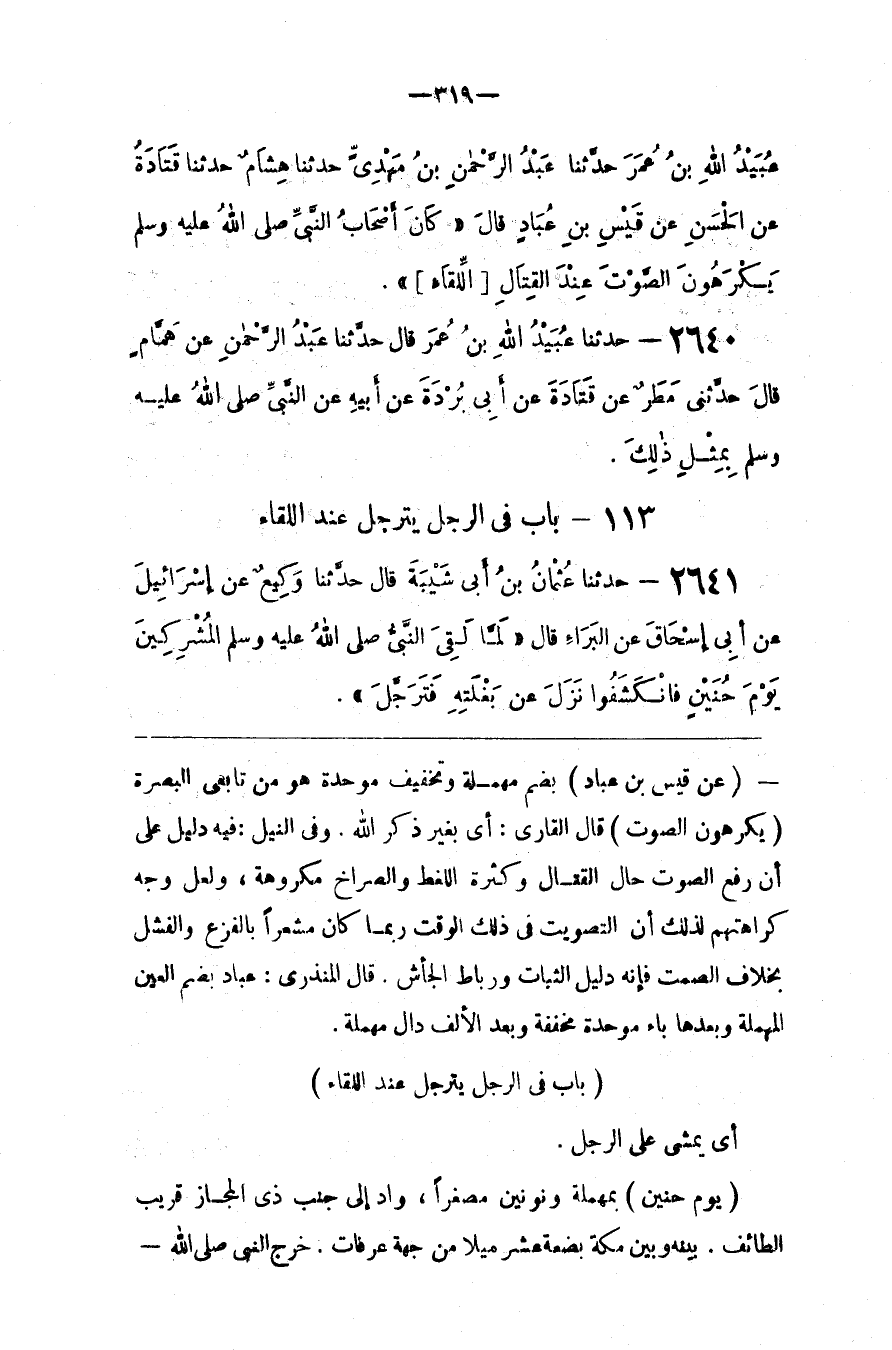 —٣١٩—
عُبَيْدُ اللهِ بنُ عُمَرَ حدَّثنا عَبْدُ الرَّحْمٰنِ بنُ مَهْدِىٍّ حدثنا هِشَامٌ حدثنا قَتَادَةُ
عن الحْسَنِ عن قَيْسِ بنِ عُبَادٍ قالَ « كَانَ أَصْحَابُ النَّبىِّ صلى اللهُ عليه وسلم
يَـكْرَهُونَ الصَّوْتَ عِنْدَ القِتَالِ [ الِّلقَاءِ ] » .
٢٦٤٠ — حدثنا عُبَيْدُ اللهِ بنُ عُمَرَ قال حدَّثنا عَبْدُ الرَّحْمٰنِ عن هَمَّامٍ
قالَ حدَّثنى مَطَرٌ عن قَتَادَةَ عن أَبِى بُرْدَةَ عن أَبيهِ عن النَّبىِّ صلى اللهُ عليـه
وسلم بِمِثْـلِ ذٰلِكَ .
١١٣ — باب فى الرجل يترجل عند اللقاء
٢٦٤١ — حدثنا عُثْمانُ بنُ أَبى شَيْبَةَ قال حدَّثنا وَكِيعٌ عن إِسْرَائِيلَ
عن أَبِى إِسْحَاقَ عن البَرَاءِ قال « لَمَّـا لَـقِىَ النَّبىُّ صلى اللهُ عليه وسلم المُشْرِكِـينَ
يَوْمَ حُنَيْنٍ فانْـكَشَفُوا نَزَلَ عن بَغْلَتِهِ فَتَرَجَّلَ » .
— ( عن قيس بن عباد ) بضم مهمـلة وتخفيف موحدة هو من تابعى البصرة
( يكرهون الصوت ) قال القارى : أى بغير ذكر الله . وفى النيل :فيه دليل على
أن رفع الصوت حال القتـال وكثرة اللغط والصراخ مكروهة ، ولعل وجه
كراهتهم لذلك أن التصويت فى ذلك الوقت ربمـا كان مشعراً بالفزع والفشل
بخلاف الصمت فإنه دليل الثبات ورباط الجأش . قال المنذرى : عباد بضم العين
المهملة وبعدها باء موحدة مخففة وبعد الألف دال مهملة .
( باب فى الرجل يترجل عند اللقاء )
أى يمشى على الرجل .
( يوم حنين ) بمهملة ونونين مصغراً ، واد إلى جنب ذى المجـاز قريب
الطائف . بينه وبين مكة بضعةعشر ميلا من جهة عرفات . خرج النبى صلى الله —